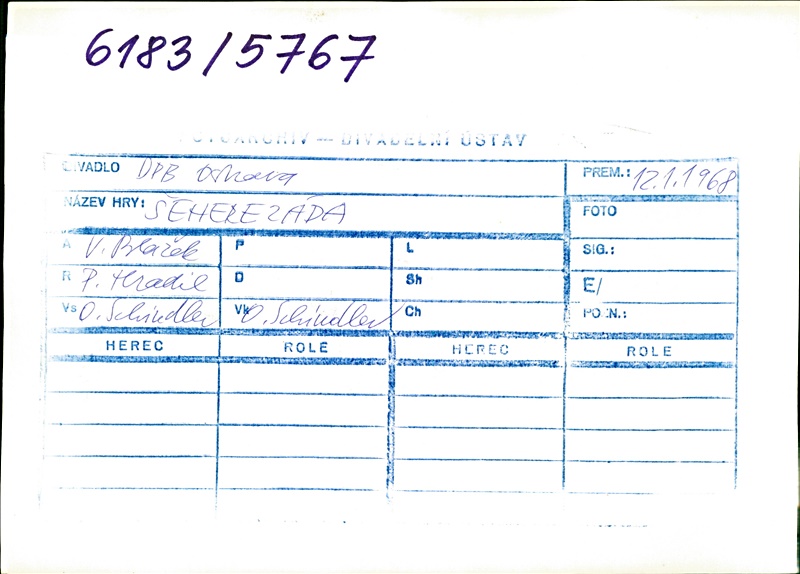 6183/5767
FOTOARCHIV — DIVADELNÍ ÚSTAV
DIVADLO DPB Ostrava PREM.: 12.1.1968
NÁZEV HRY: ŠEHEREZÁDA FOTO
A V. Blažek P L SIG.:
R P. Hradil D Sh E/
Vs O. Schindler Vk O. Schindler Ch POZN.:
HEREC ROLE HEREC ROLE